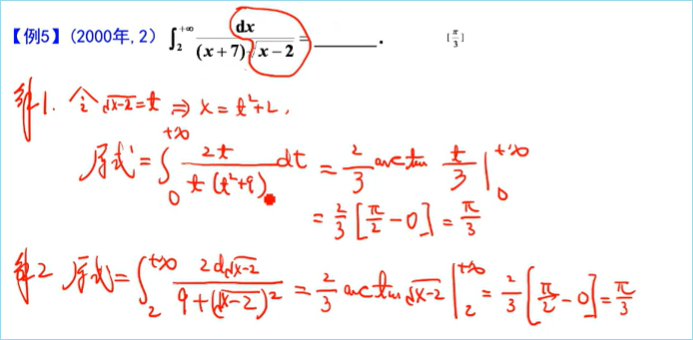 【例5】(2000年,2) ∫₂^{+∞} dx/((x+7)√(x-2)) = ________. [π/3]
解1. 令√(x-2)=t ⇒ x=t²+2,
原式=∫₀^{+∞} 2t/(t(t²+9)) dt = 2/3 arctan t/3 |₀^{+∞}
= 2/3 [π/2-0] = π/3
解2 原式=∫₂^{+∞} 2d√(x-2)/(9+(√(x-2))²) = 2/3 arctan √(x-2) |₂^{+∞} = 2/3 [π/2-0] = π/3